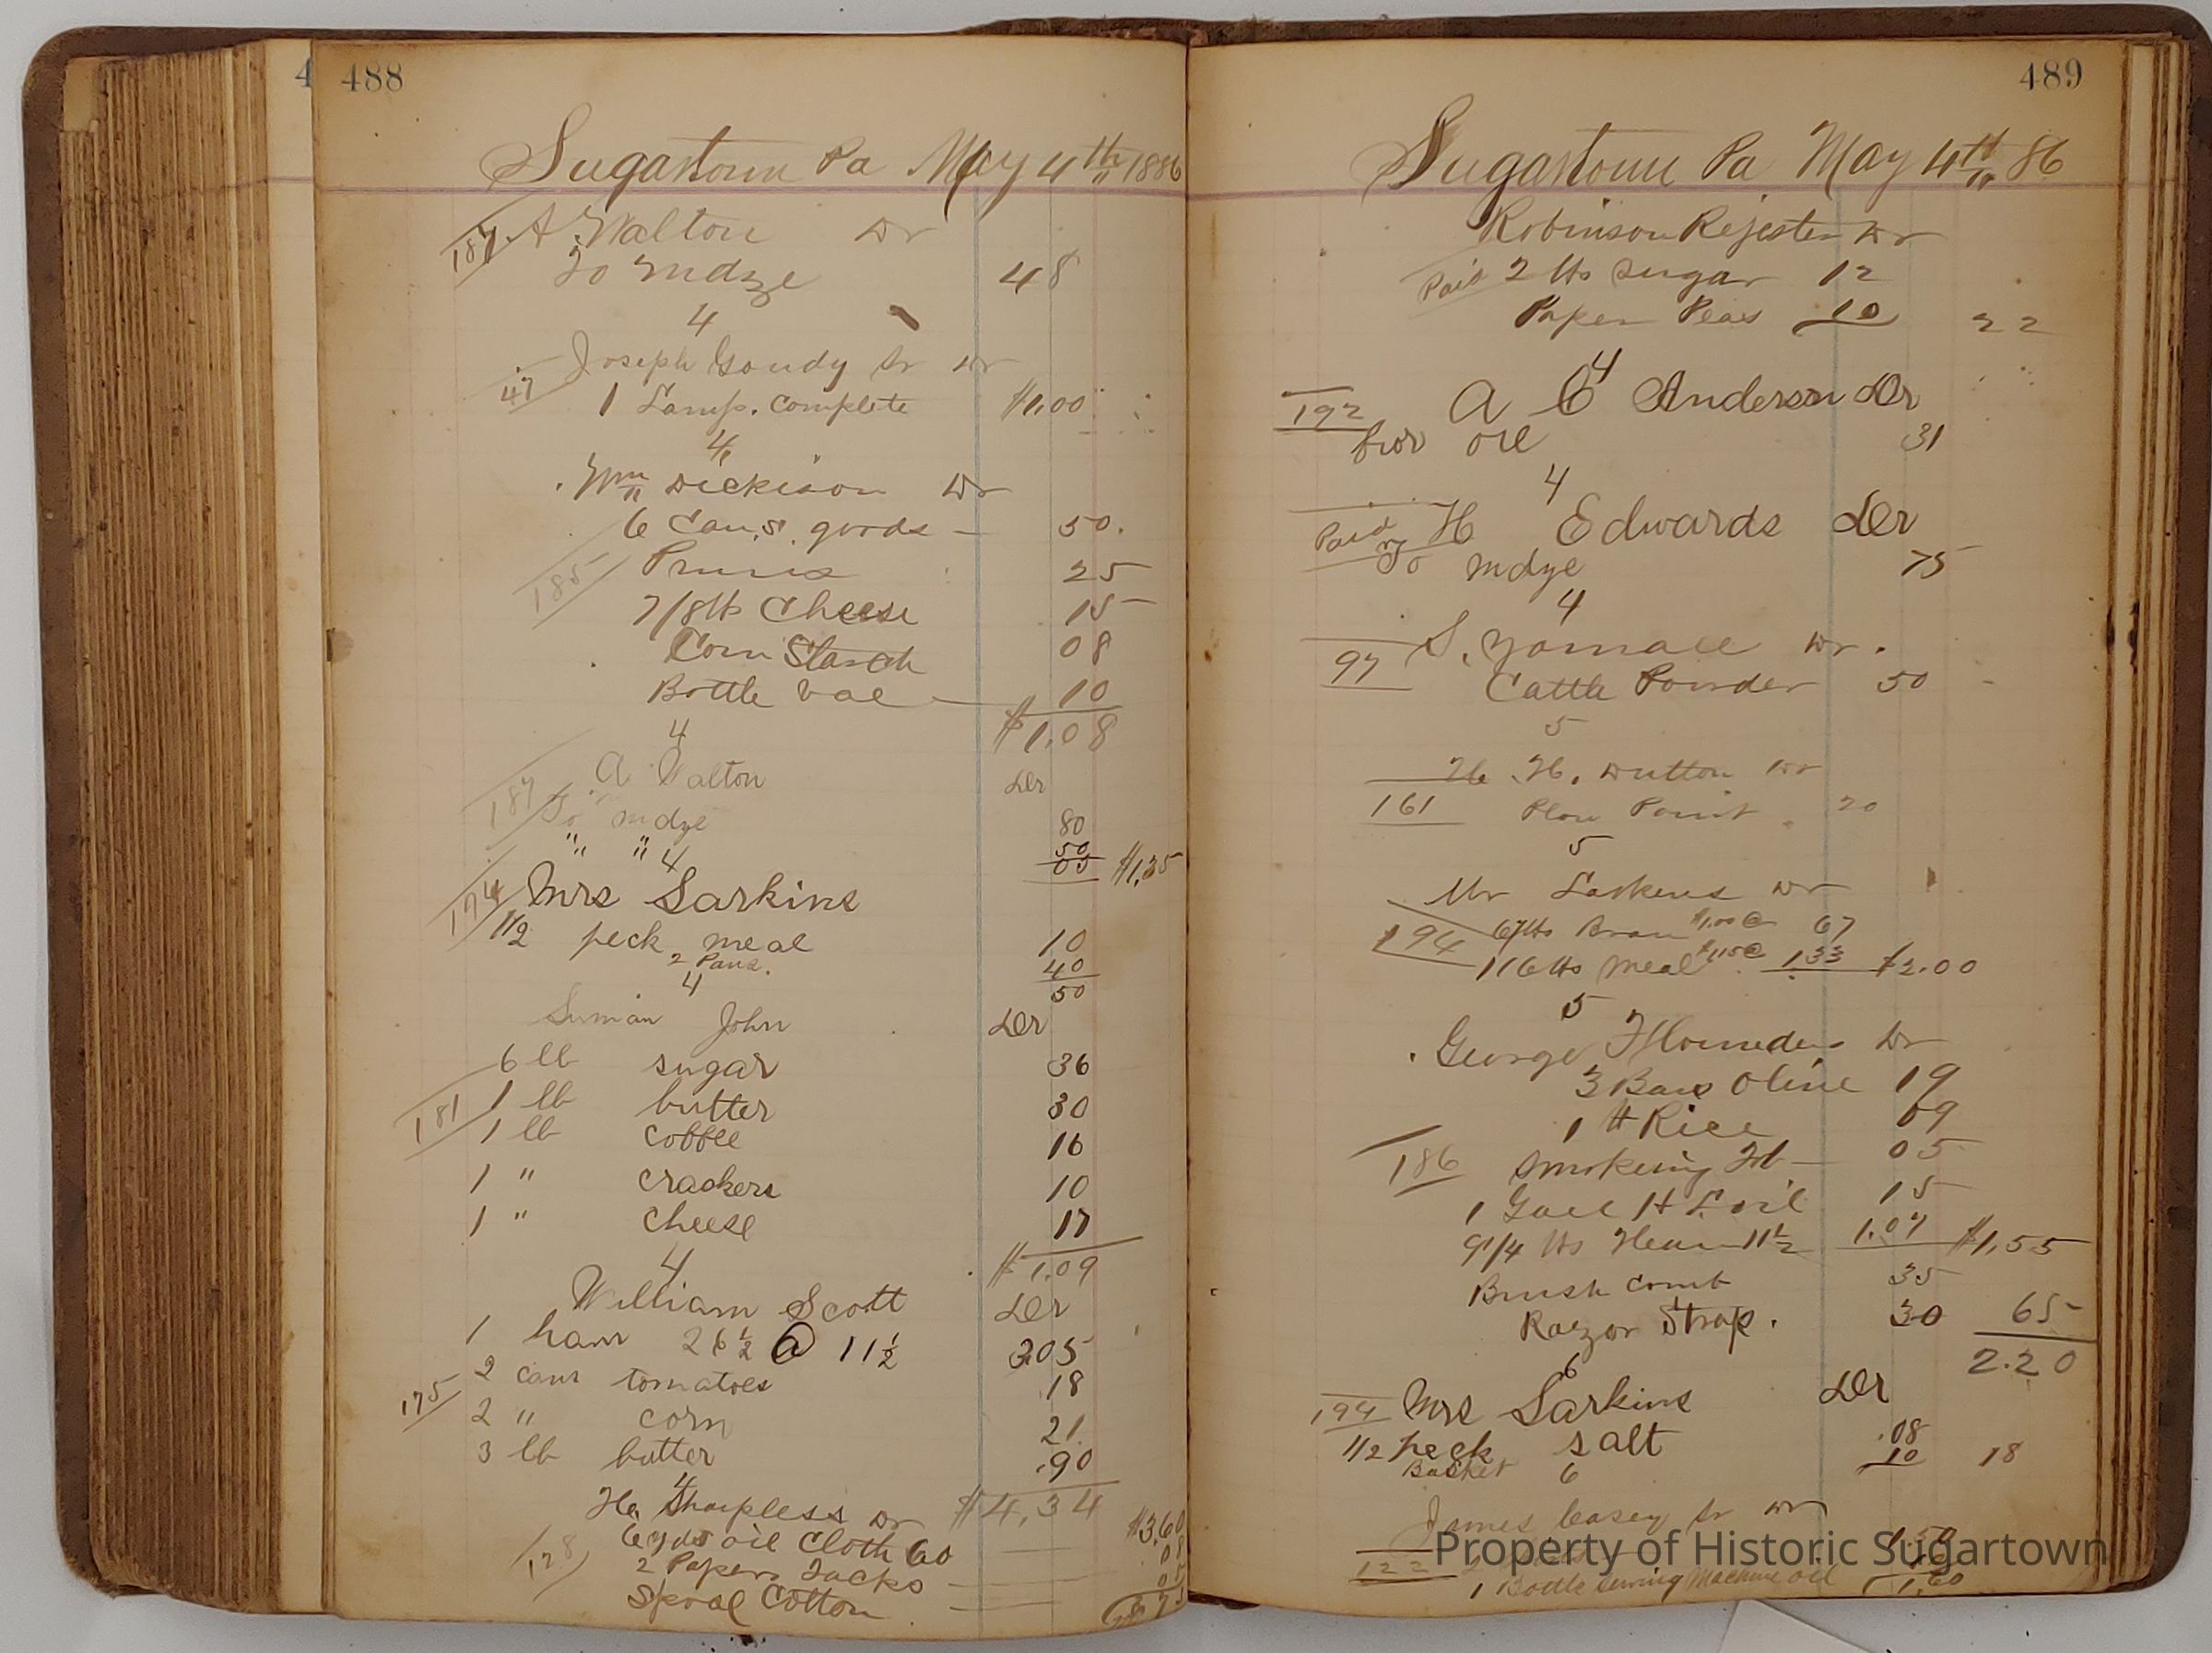 4
488
Sugartown Pa May 4th 1886
187 A. Walton Dr
To mdze 48
4
Joseph Goudy Sr Dr
47 1 Lamp. complete $1.00
4
Wm Dickison Dr
6 Cans. goods 50.
185 Pruns 25
7/8 lb Cheese 15
Corn Starch 08
Bottle 10
$1.08
4
187 A Walton Dr
To mdze 80
" " 50
05 $1.35
4
174 Mrs Larkins
1/2 peck meal 10
2 Pans. 40
50
4
John Dr
6 lb sugar 36
181 1 lb butter 30
1 lb coffee 16
1 " crackers 10
1 " cheese 17
$1.09
4
William Scott Dr
1 ham 26 1/2 @ 11 1/2 3.05
2 cans tomatoes 18
175 2 " corn 21
3 lb butter .90
$4.34
4
Sharpless Dr
6 yds oil Cloth 60 $3.60
128 2 Papers Tacks 08
Spool Cotton 05
489
Sugartown Pa May 4th 86
Robinson Rejester Dr
Paid 2 lbs sugar 12
Paper Peas 10 22
4
192 A C Anderson Dr
for oil 31
4
Paid H Edwards Dr
To mdze 75
4
97 S. Yarnall Dr.
Cattle Powder 50
5
H. Dutton Dr
161 Plow Point 20
5
Mr Larkens Dr
194 67 lbs Bran $1.00 C 67
116 lbs Meal $1.15 C 1.33 $2.00
5
George Dr
3 Bars Oline 19
1 lb Rice 09
186 Smoking Tob 05
1 Gall H L oil 15
9 1/4 lbs Ham 11 1/2 1.07 $1.55
Brush Comb 35
Razor Strap. 30 65
2.20
6
194 Mrs Larkins Dr
1/2 peck salt .08
Basket 10 18
6
James Casey Sr Dr
122 1.50
1 Bottle Sewing Machine oil 10
1.60
Property of Historic Sugartown